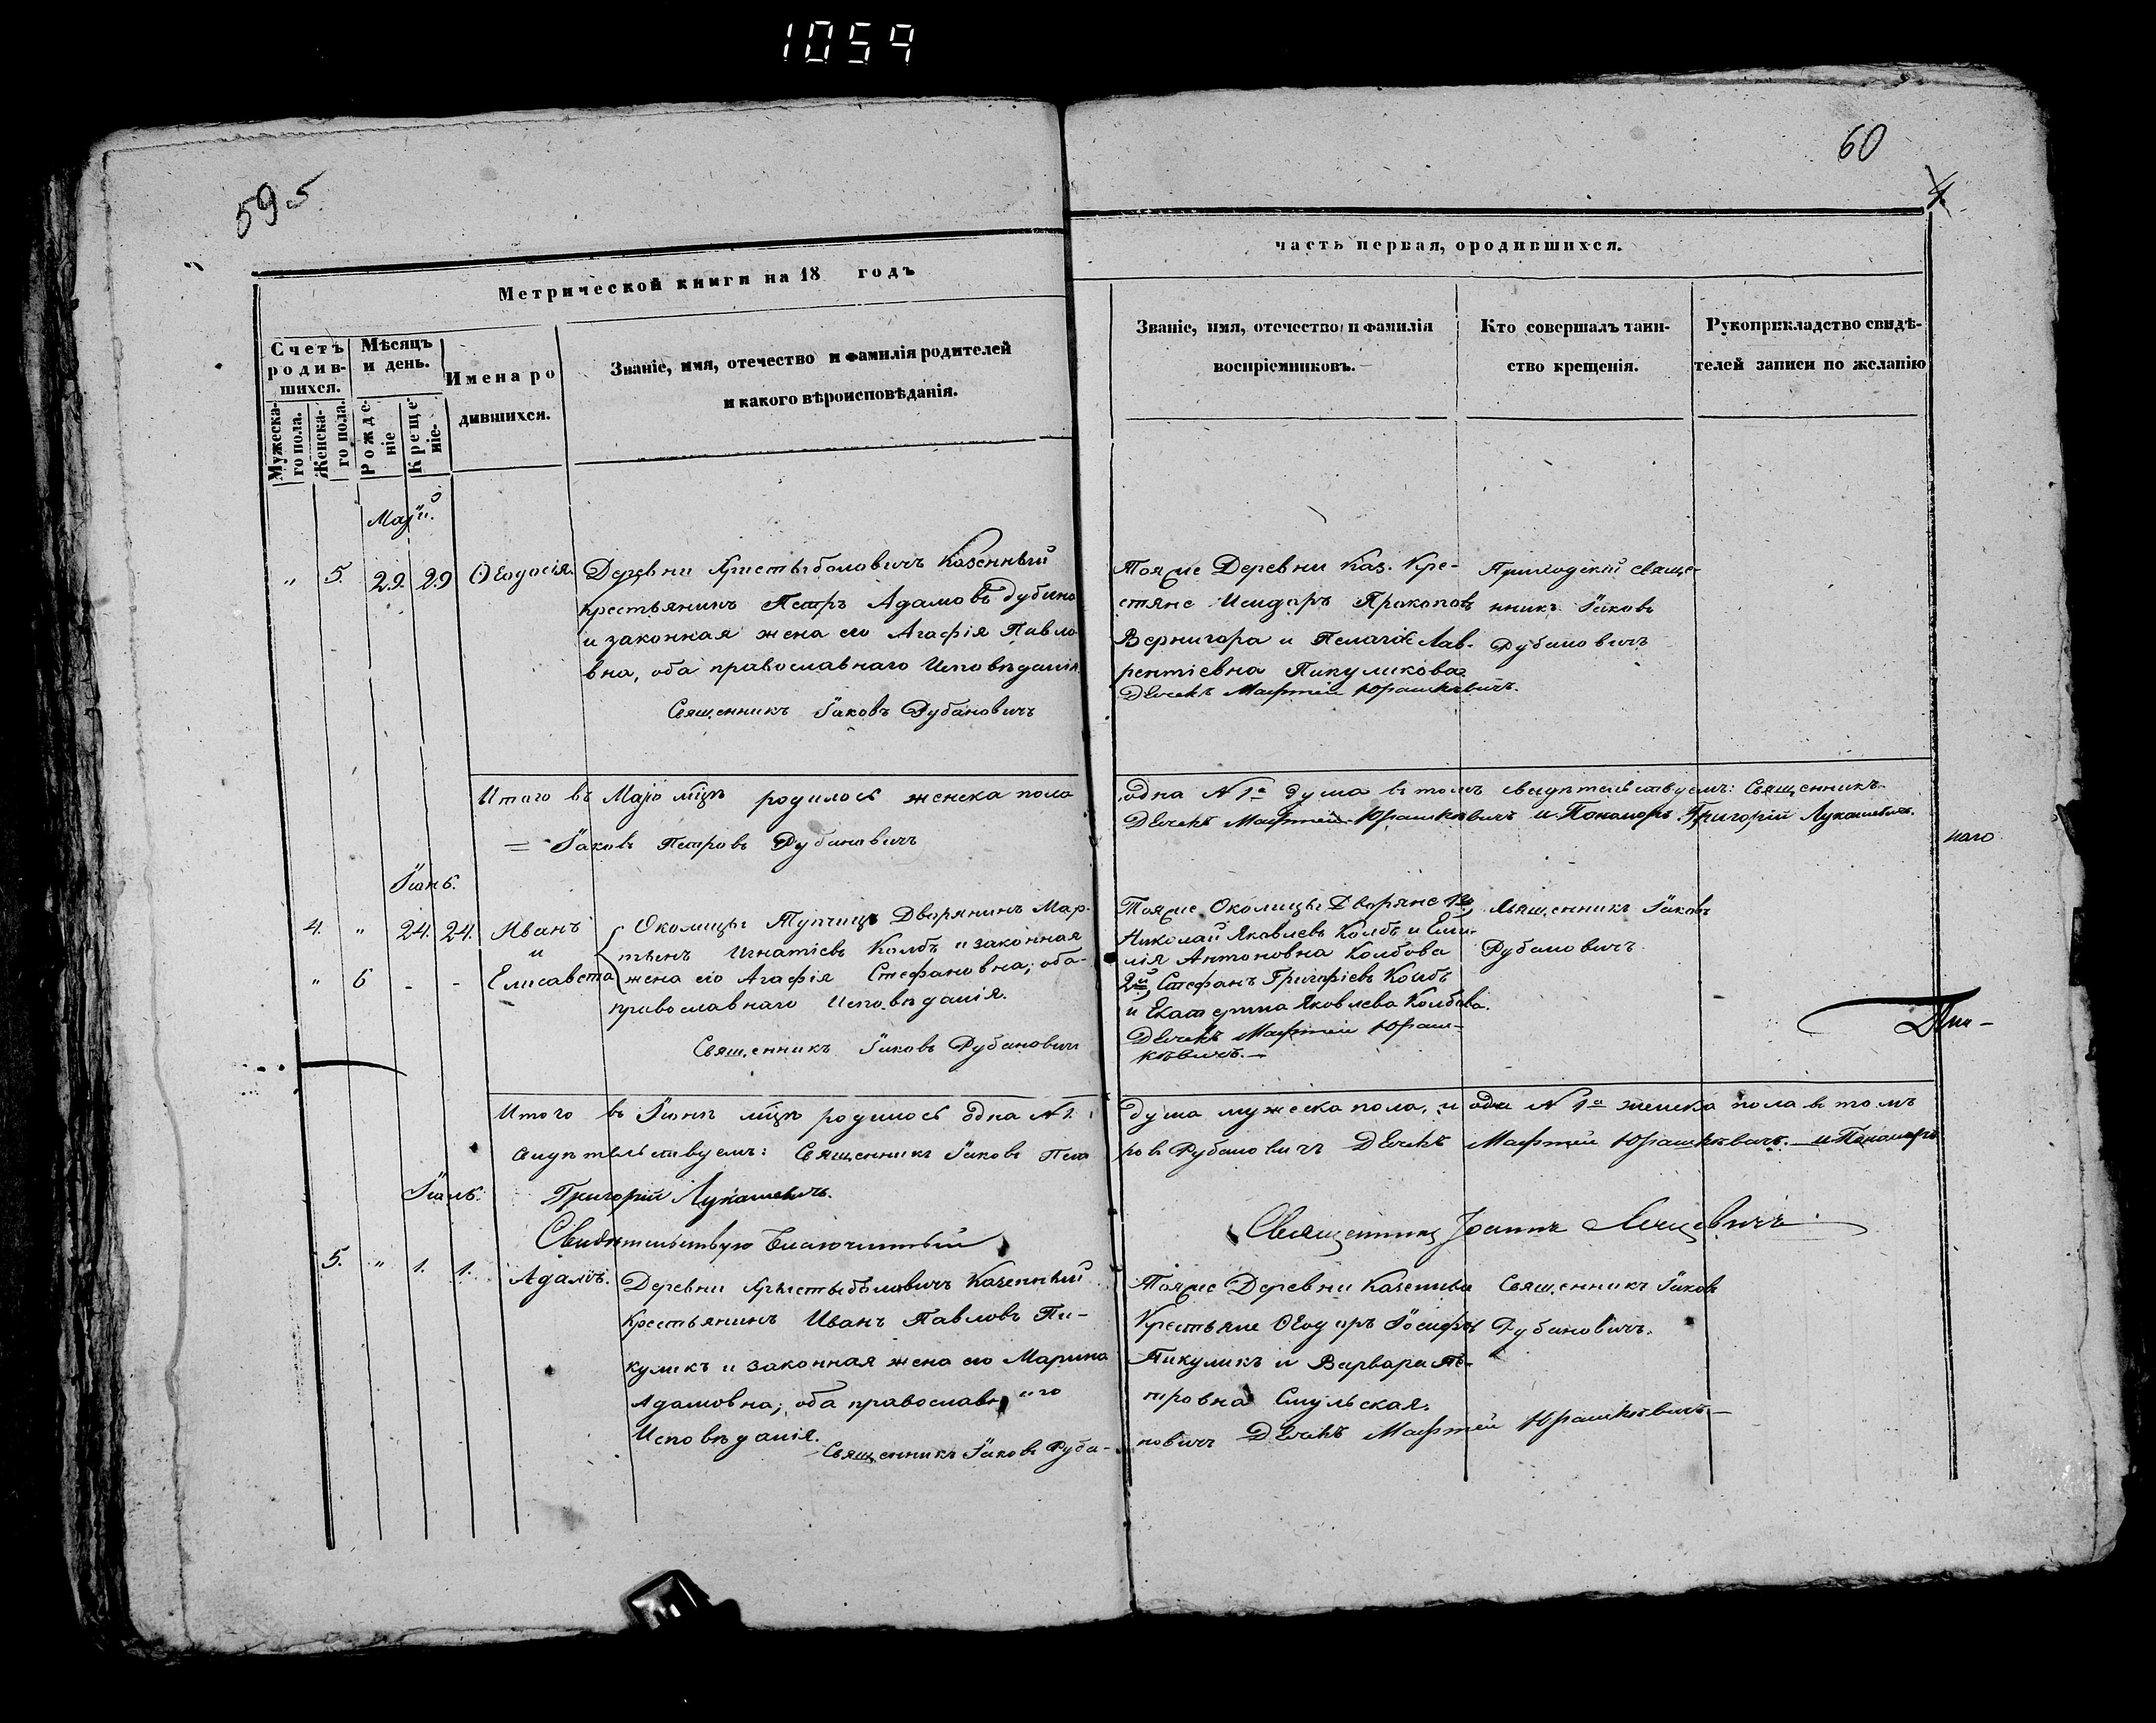 1059
59 5
60
4.
Метрической книги на 18 годъ
часть первая, о родившихся.
Счетъ родившихся.
Мужеска-го пола.
Женска-го пола.
Мѣсяцъ и день.
Рожде-ніе
Креще-ніе.
Имена ро дившихся.
Званіе, имя, отечество и фамилія родителей
и какого вѣроисповѣданія.
Званіе, имя, отечество и фамилія
воспріемниковъ.
Кто совершалъ таин-
ство крещенія.
Рукоприкладство свидѣ-
телей записи по желанію
Маій.
" 5. 29. 29 Ѳеодосія.
Деревни Казенный
крестьянинъ Петръ Адамовъ
и законная жена его Агафія Павло
вна, оба православнаго Исповѣданія.
Священникъ Іаковъ Рубановичъ
Тояже Деревни Каз. Кре-
стяне Исидоръ Прокоповъ
Вернигора и Пелагія Лав-
рентіевна Пикуликова
Дьячекъ Юрашкѣвичъ.
Приходскій свяще-
нникъ Іаковъ
Рубановичъ
Итого въ Маіо мцѣ родилось женска пола
одна № 1а душа въ томъ свидѣтельствуемъ: Священникъ
= Іаковъ Петровъ Рубановичъ
Дьячекъ Юрашкѣвичъ и Пономоръ Григорій Лукашевичъ.
наго
Іюнь.
4. " 24. 24. Иванъ
и
" 6 - - Елисавета
Околицы Дворянинъ Мар-
тынъ Игнатіевъ Колбъ и законная
жена его Агафія Стефановна; оба
православнаго Исповѣданія.
Священникъ Іаковъ Рубановичъ
Тояже Околицы Дворяне 1е,
Николай Яковлевъ Колбъ и Еми-
лія Антоновна Колбова
2й, Стефанъ Григоріевъ Колбъ
и Екатерина Яковлева Колбова.
Дьячекъ Юраш-
кѣвичъ.-
Священникъ Іаковъ
Рубановичъ
Итого въ Іюнѣ мцѣ родилось одна № 1.
душа мужеска пола, и одна № 1а женска пола въ томъ
свидѣтельствуемъ: Священникъ Іаковъ Пет
ровъ Рубановичъ Дьячекъ Юрашкѣвичъ.- и Пономоръ
Григорій Лукашевичъ.
Свидѣтельствую Благочинный
Священникъ Іоаннъ
Іюль.
5. " 1. 1. Адамъ.
Деревни Казенный
Крестьянинъ Иванъ Павловъ Пи-
куликъ и законная жена его Марина
Адамовна; оба православнаго
Исповѣданія.
Священникъ Іаковъ Руба-
Тояже Деревни Казенные
Крестьяне Ѳеодоръ Іосифовъ
Пикуликъ и Варвара Пе-
тровна Смульская.
новичъ Дьячекъ Юрашкѣвичъ-
Священникъ Іаковъ
Рубановичъ.